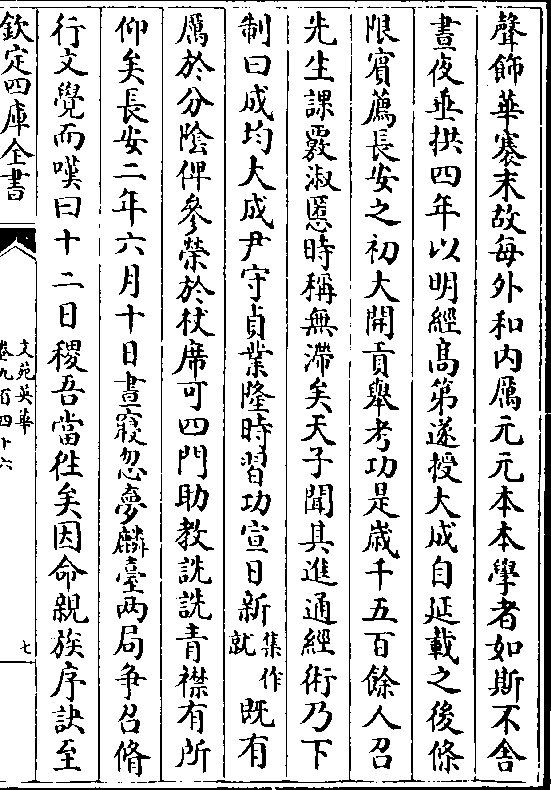 聲飾華褰末故每外和内厲元元本本學者如斯不舎
晝夜垂拱四年以明經髙第遂授大成自延載之後條
限賓薦長安之初大開貢舉考功是歳千五百餘人召
先生課覈淑慝時稱無滯矣天子聞其進通經術乃下
制曰成均大成尹守貞業隆時習功宣日新集作就既有
厲於分陰俾參榮於杖席可四門助教詵詵青襟有所
仰矣長安二年六月十日晝寢忽夢麟臺兩局爭召脩
行文覺而嘆曰十二日稷吾當徃矣因命親族序訣至
欽定四庫全書
文苑英華
卷九百四十六
七